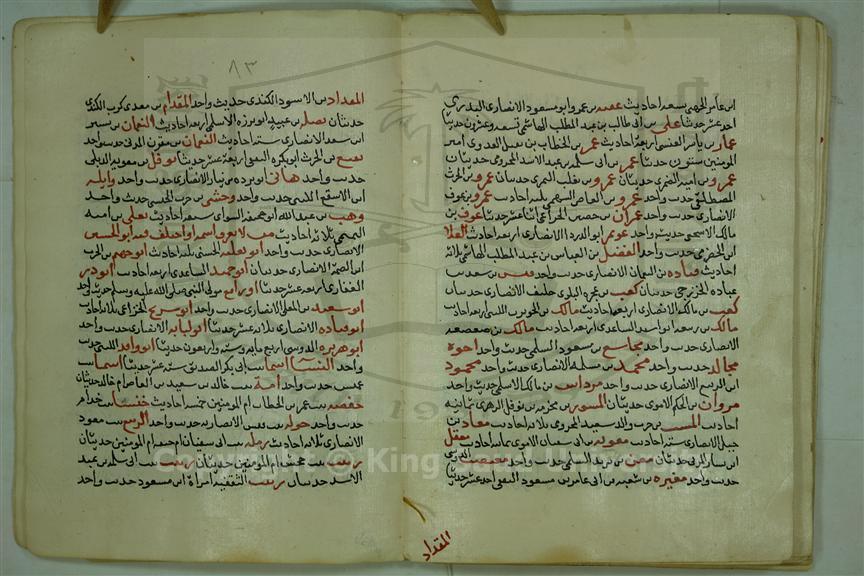 ابن عامر الجهني تسعة احاديث عقبة بن عمرو ابو مسعود الانصاري البدري
احد عشر حديثا علي بن ابي طالب بن عبد المطلب الهاشمي تسعة وعشرون حديثا
عمار بن ياسر العنسي اربعة احاديث عمر بن الخطاب بن نفيل العدوي امير
المومنين ستون حديثا عمر بن ابي سلمة بن عبد الاسد المخزومي حديثان
عمرو بن امية الضمري حديثان عمرو بن تغلب النمري حديثان عمرو بن الحرث
المصطلقي حديث واحد عمرو بن العاص السهمي ثلثة احاديث عمرو بن عوف
الانصاري حديث واحد عمران بن حصين الخزاعي اثنا عشر حديثا عوف بن
مالك الاشجعي حديث واحد عويمر ابو الدردا الانصاري اربعة احاديث العلا
ابن الحضرمي حديث واحد الفضل بن العباس بن عبد المطلب الهاشمي ثلاثة
احاديث قتادة بن النعمان الانصاري حديث واحد قيس بن سعد بن
عبادة الخزرجي حديثان كعب بن عجرة البلوي حليف الانصاري حديثان
كعب بن مالك الانصاري اربعة احاديث مالك بن الحويرث الليثي اربعة احاديث
مالك بن ربيعة ابو اسيد الساعدي اربعة احاديث مالك بن صعصعة
الانصاري حديث واحد مجاشع بن مسعود السلمي حديث واحد اخوه
مجالد حديث واحد محمد بن مسلمة الانصاري حديث واحد محمود
ابن الربيع الانصاري حديث واحد مرداس بن مالك الاسلمي حديث واحد
مروان بن الحكم الاموي حديثان المسور بن مخرمة بن نوفل الزهري ثمانية
احاديث المسيب بن حزن والد سعيد المخزومي ثلاثة احاديث معاذ بن
جبل الانصاري ستة احاديث معوية بن ابي سفيان الاموي ثمانية احاديث معقل
ابن يسار المزني حديثان معن بن يزيد السلمي حديث واحد معيقيب الدوسي
حديث واحد مغيرة بن شعبة بن ابي عامر بن مسعود الثقفي احد عشر حديثا
المقداد
٨٣
المقداد بن الاسود الكندي حديث واحد المقدام بن معدي كرب الكندي
حديثان نضلة بن عبيد ابو برزة الاسلمي اربعة احاديث النعمان بن بشير
ابن سعد الانصاري ستة احاديث النعمان بن مقرن المزني حديث واحد
نفيع بن الحرث ابو بكرة الثقفي اربعة عشر حديثا نوفل بن معوية الديلي
حديث واحد هاني ابو بردة بن نيار الانصاري حديث واحد واثلة
ابن الاسقع الليثي حديث واحد وحشي بن حرب الحبشي حديث واحد
وهب بن عبد الله ابو جحيفة السواي سبعة احاديث يعلى بن امية
التميمي ثلاثة احاديث من لا يعرف اسمه او اختلف فيه ابو
الانصاري حديث واحد ابو ثعلبة الخشني ثلثة احاديث ابو جهيم بن الحرث
ابن الصمة الانصاري حديثان ابو حميد الساعدي اربعة احاديث ابو ذر
الغفاري اربعة عشر حديثا ابو رافع مولى النبي صلى الله عليه وسلم حديث واحد
ابو سعيد بن المعلى الانصاري حديث واحد ابو شريح الخزاعي ثلاثة احاديث
ابو قتادة الانصاري ثلاثة عشر حديثا ابو لبابة الانصاري حديث واحد
ابو هريرة الدوسي اربع ماية وستة واربعون حديثا ابو واقد الليثي حديث
واحد النسا اسما بنت ابي بكر الصديق ستة عشر حديثا اسما بنت
عميس حديث واحد امة بنت خالد بن سعيد بن العاص ام خالد حديثان
حفصة بنت عمر بن الخطاب ام المومنين خمسة احاديث خنسا بنت خذام
حديث واحد خولة بنت قيس الانصارية حديث واحد الربيع بنت معوذ
الانصاري ثلاثة احاديث رملة بنت ابي سفيان ام حبيبة ام المومنين حديثان
زينب بنت جحش ام المومنين حديثان زينب بنت ابي سلمة بن عبد
الاسد حديثان زينب الثقفية امراة ابن مسعود حديث واحد
Copyright © King Saud University